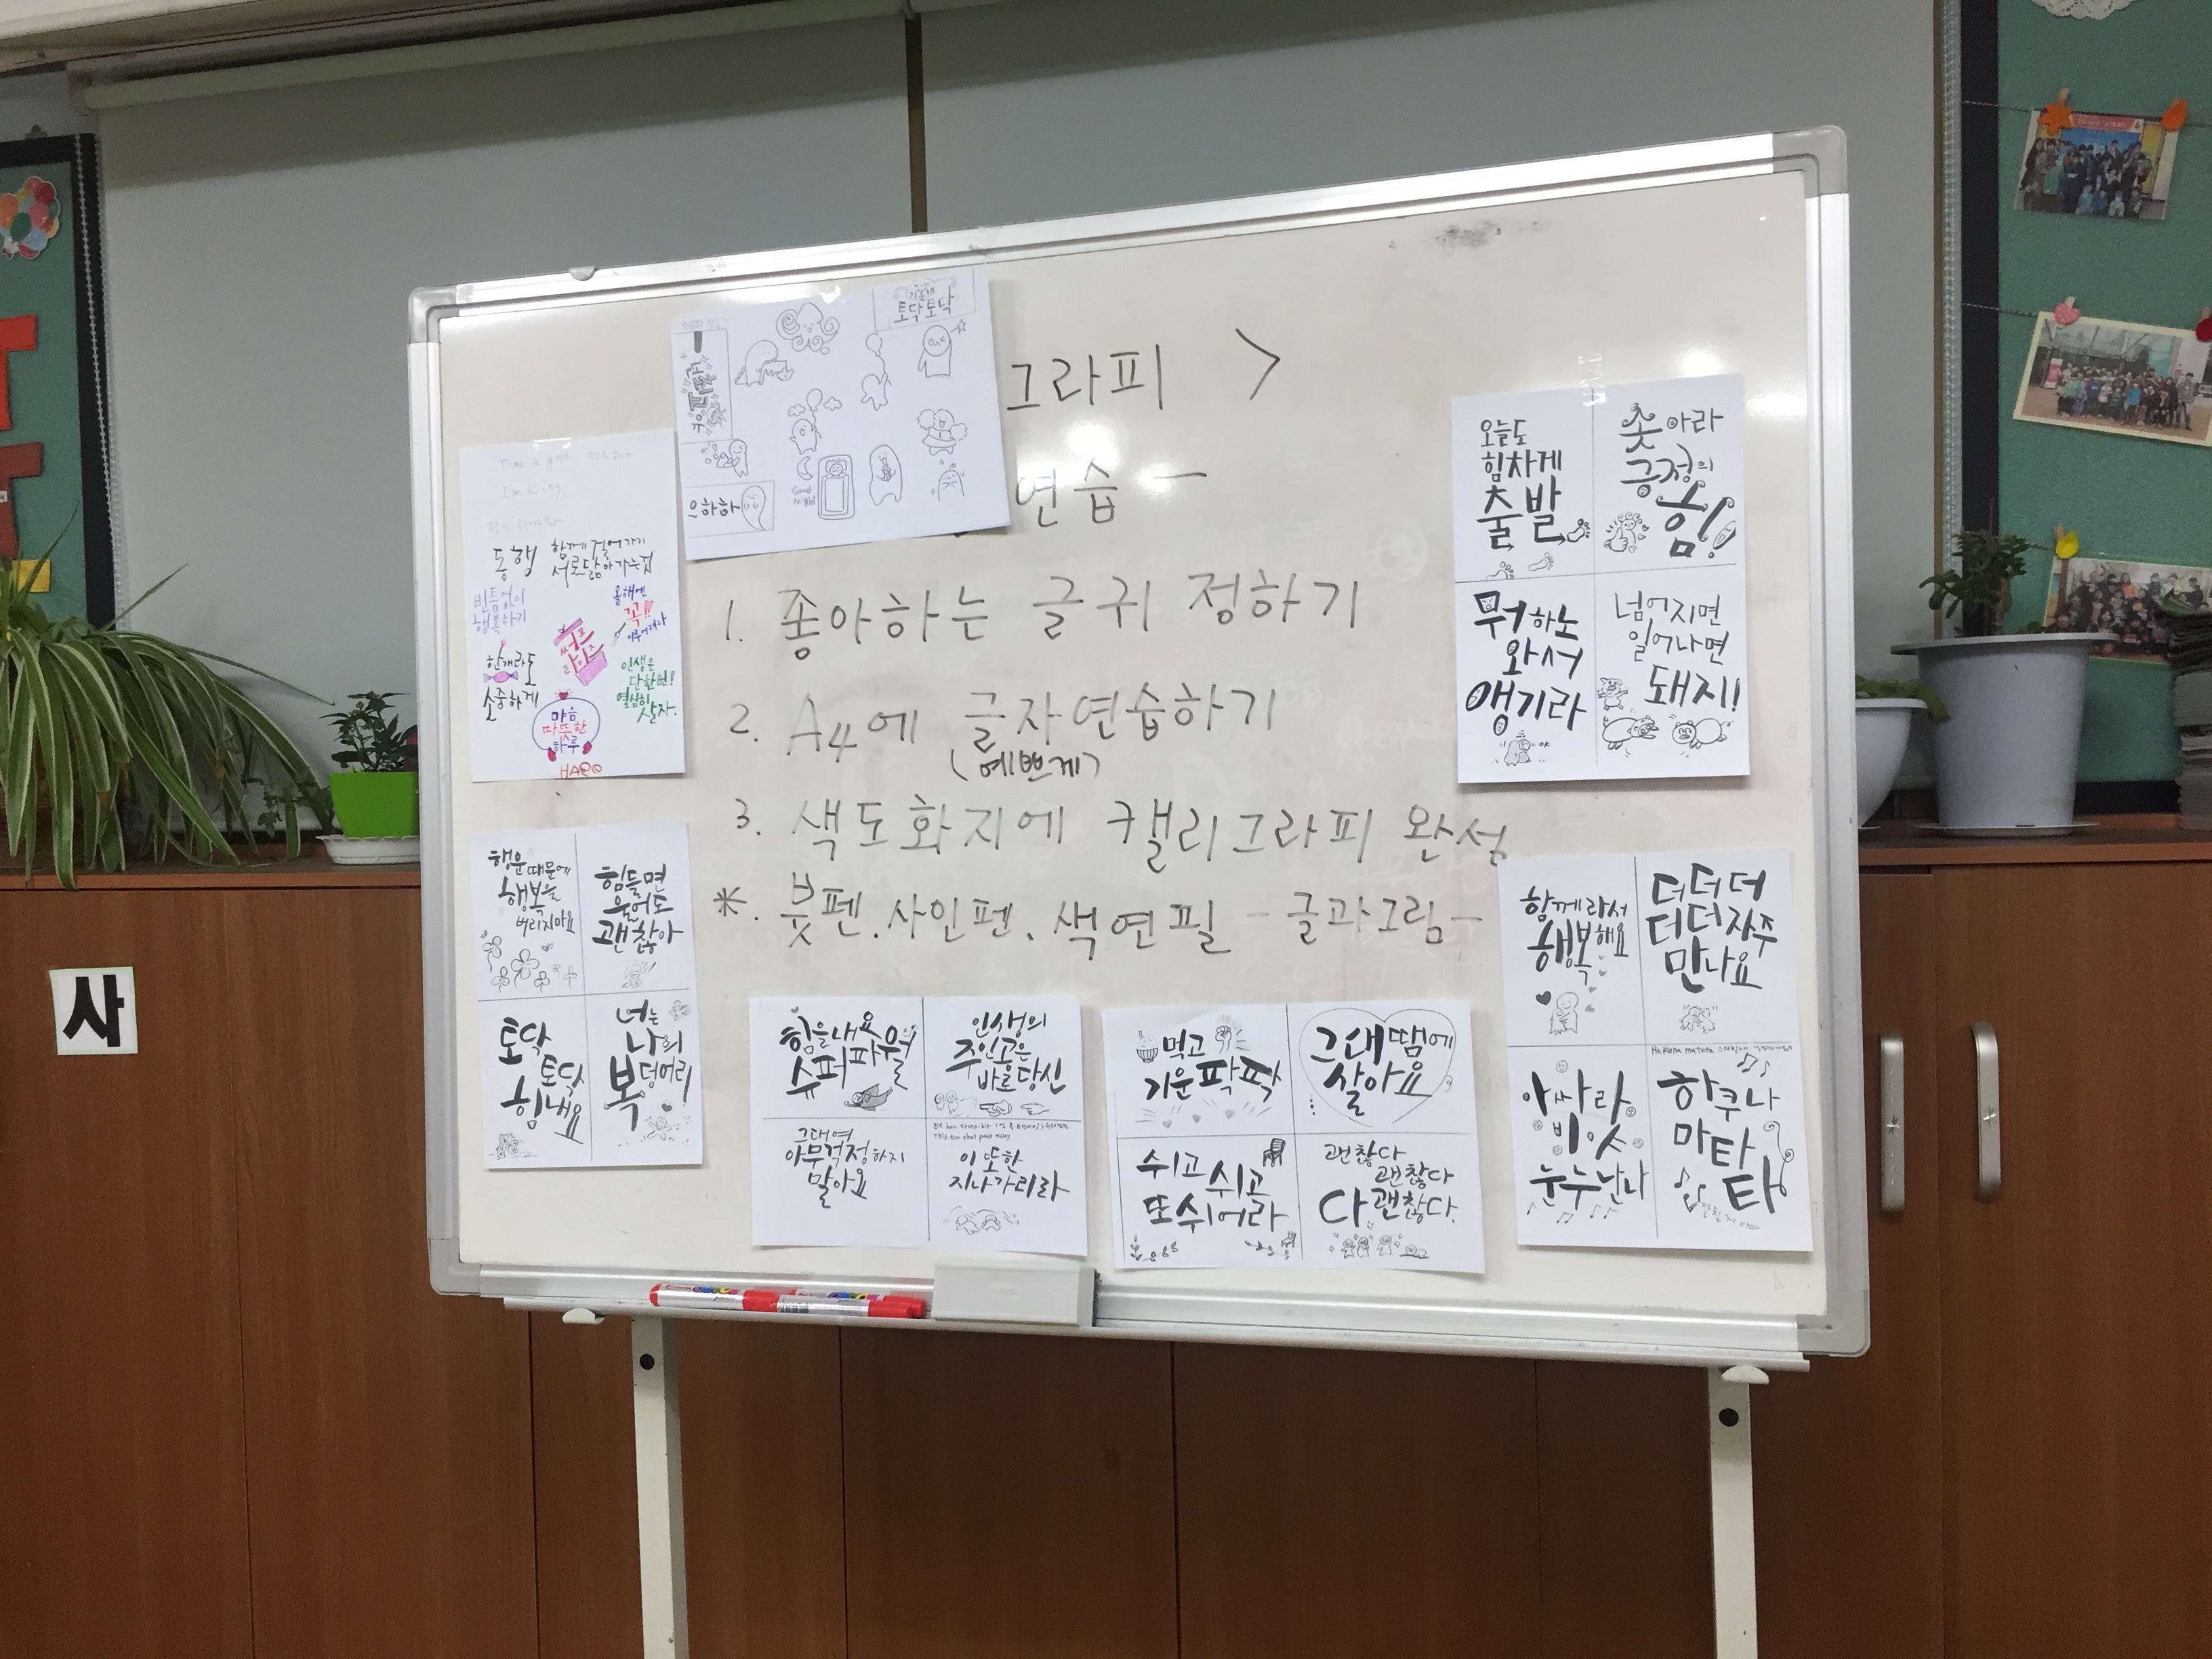 그라피 >
연습 -
1. 좋아하는 글귀 정하기
2. A4에 글자연습하기
(예쁘게)
3. 색도화지에 캘리그라피 완성
*. 붓펜. 사인펜. 색연필 - 글과그림 -
토닥토닥
으하하
Good
Night
Time is gold
I'm King
동행
함께 걸어가기
서로닮아가는것
빈틈없이
행복하기
올해엔
꼭!!
이루어져라
한개라도
소중하게
인생은
단한번!
열심히
살자.
마음
따뜻한
하루
오늘도
힘차게
출발
좃아라
긍정의
힘!
뭐하노
와서
앵기라
넘어지면
일어나면
돼지!
행운때문에
행복을
버리지마요
힘들면
울어도
괜찮아
토닥
토닥
힘내요
너는
나의
복덩어리
힘을내요
슈퍼파월
인생의
주인공은
바로당신
그대여
아무걱정하지
말아요
This too shall pass away
이 또한
지나가리라
먹고
기운팍팍
그대땜에
살아요
쉬고쉬고
또쉬어라
괜찮다
괜찮다
다괜찮다.
함께라서
행복해요
더더더
더더자주
만나요
아싸라
비아
눈누난나
Hakuna matata
하쿠나
마타
타
사